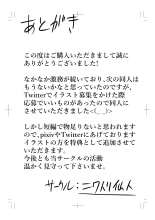 あとがき
この度はご購入いただきまして誠に
ありがとうございます!
なかなか激務が続いており、次の同人は
もうないかなと思っていたのですが、
Twitterでイラスト募集をかけた際
応募でいいものがあったので同人に
させていただきました<(_ _)>
しかし短編で物足りないと思われますので、
pixivやTwitterにあげております
イラストの方を特典として追加させて
いただきます。
今後とも当サークルの活動
温かく見守って下さいませ。
サークル:ニワトリ仙人